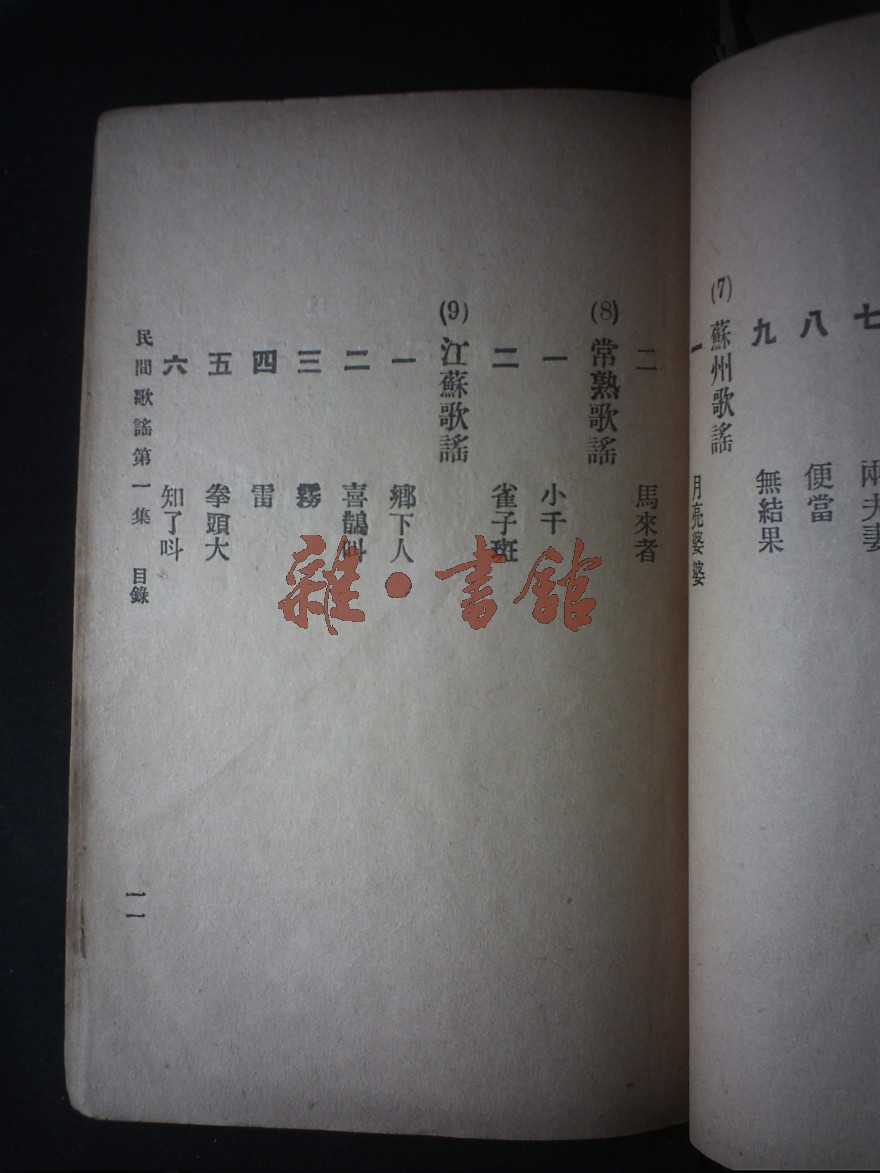 七 兩夫妻
八 便當
九 無結果
(7) 蘇州歌謠
一 月亮婆婆
二 馬來者
(8) 常熟歌謠
一 小千
二 雀子斑
(9) 江蘇歌謠
一 鄉下人
二 喜鵲叫
三 霧
四 雷
五 拳頭大
六 知了呌
民間歌謠第一集 目錄
一一
雜·書館